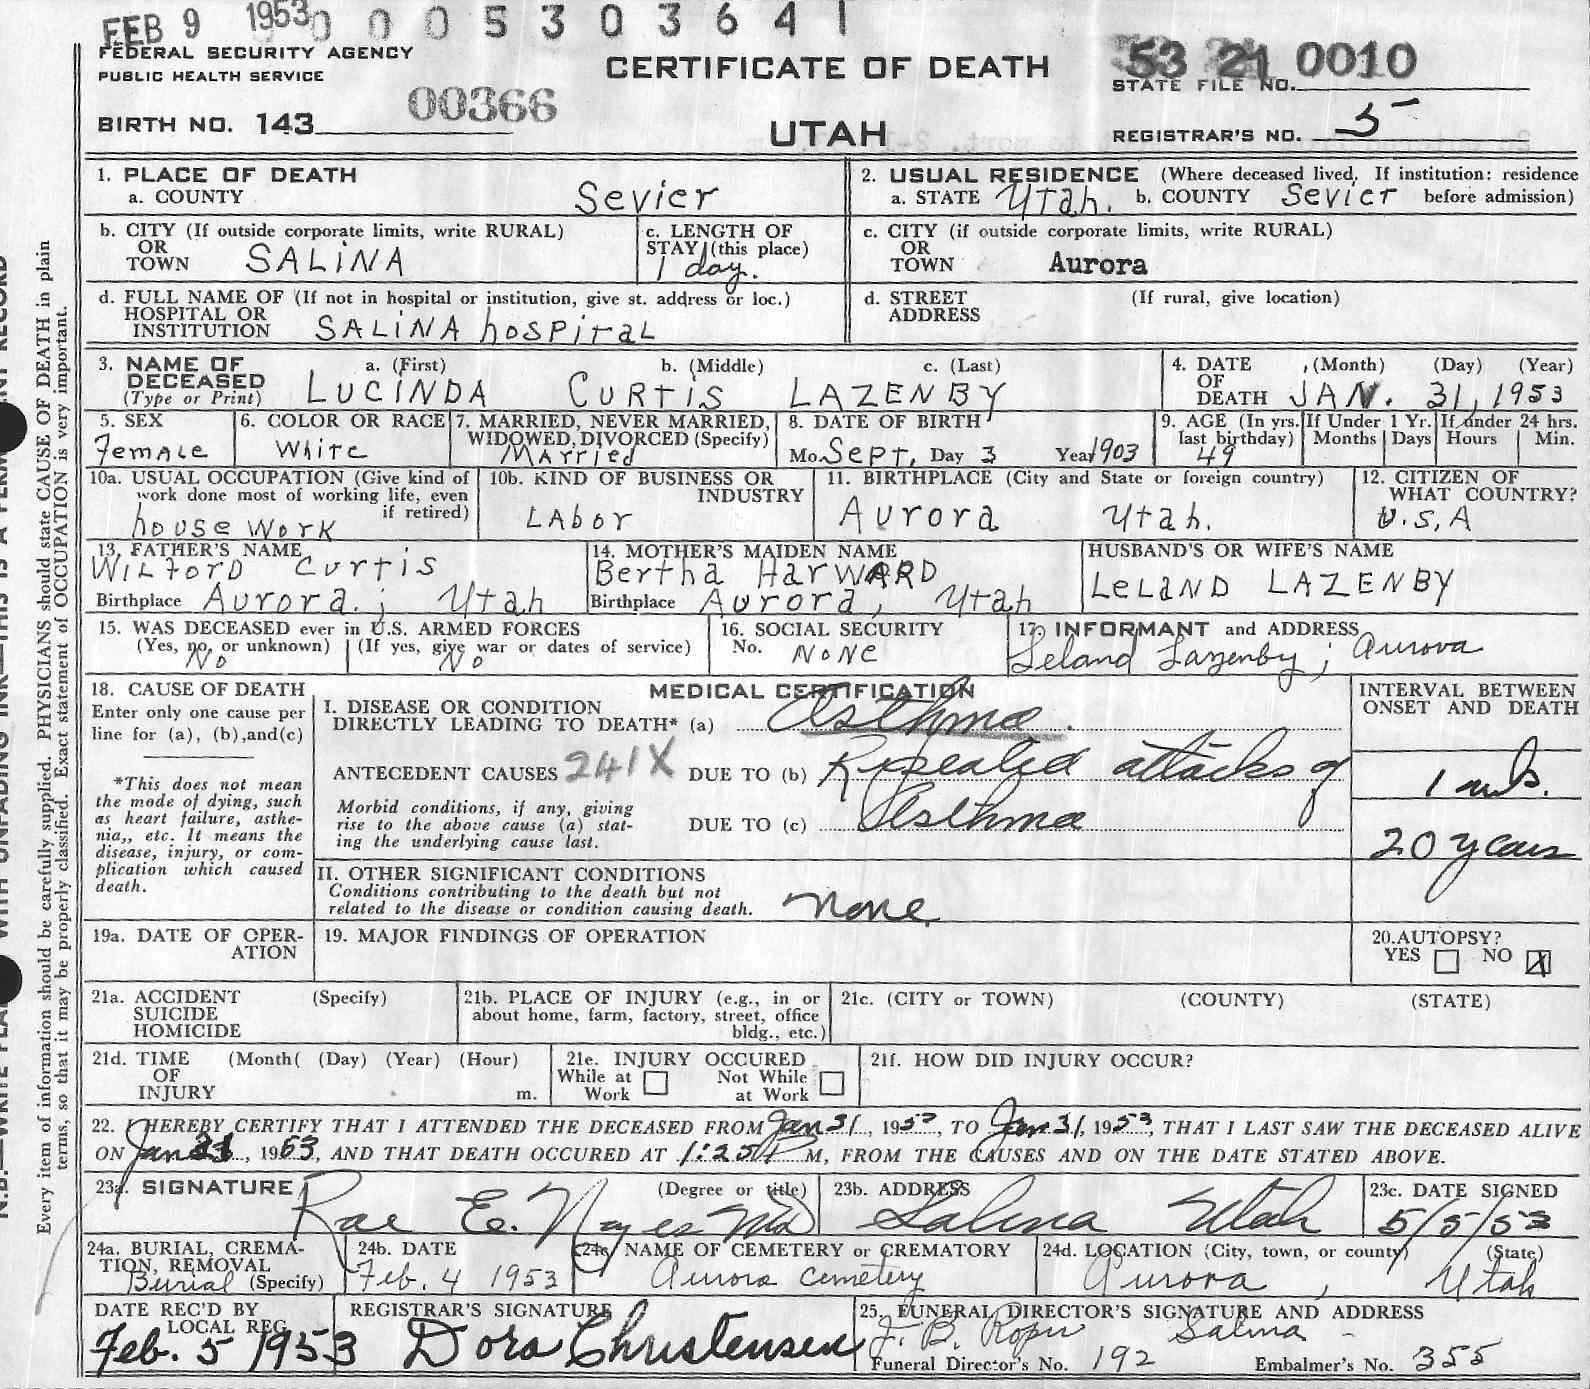 FEB 9 1953 0 0 0 5 3 0 3 6 4 1
FEDERAL SECURITY AGENCY
PUBLIC HEALTH SERVICE
CERTIFICATE OF DEATH
53 21 0010
STATE FILE NO.
00366
BIRTH NO. 143
UTAH
REGISTRAR'S NO. 5
1. PLACE OF DEATH
a. COUNTY Sevier
2. USUAL RESIDENCE (Where deceased lived. If institution: residence
a. STATE Utah. b. COUNTY Sevier before admission)
b. CITY (If outside corporate limits, write RURAL)
OR
TOWN SALINA
c. LENGTH OF
STAY (this place)
1 day.
c. CITY (if outside corporate limits, write RURAL)
OR
TOWN Aurora
d. FULL NAME OF (If not in hospital or institution, give st. address or loc.)
HOSPITAL OR
INSTITUTION SALINA hospital
d. STREET (If rural, give location)
ADDRESS
3. NAME OF a. (First) b. (Middle) c. (Last)
DECEASED
(Type or Print) LUCINDA CURTIS LAZENBY
4. DATE (Month) (Day) (Year)
OF
DEATH JAN. 31, 1953
5. SEX
Female
6. COLOR OR RACE
White
7. MARRIED, NEVER MARRIED,
WIDOWED, DIVORCED (Specify)
Married
8. DATE OF BIRTH
Mo. Sept. Day 3 Year 1903
9. AGE (In yrs. last birthday) 49
If Under 1 Yr. Months Days
If under 24 hrs. Hours Min.
10a. USUAL OCCUPATION (Give kind of
work done most of working life, even
if retired)
house work
10b. KIND OF BUSINESS OR
INDUSTRY
LAbor
11. BIRTHPLACE (City and State or foreign country)
Aurora Utah.
12. CITIZEN OF
WHAT COUNTRY?
U.S.A
13. FATHER'S NAME
WILford Curtis
Birthplace Aurora; Utah
14. MOTHER'S MAIDEN NAME
Bertha HarWARD
Birthplace Aurora, Utah
HUSBAND'S OR WIFE'S NAME
LeLAND LAZENBY
15. WAS DECEASED ever in U.S. ARMED FORCES
(Yes, no, or unknown) (If yes, give war or dates of service)
No No
16. SOCIAL SECURITY
No. NONe
17. INFORMANT and ADDRESS
Leland Lazenby; Aurora
18. CAUSE OF DEATH
Enter only one cause per
line for (a), (b), and (c)
*This does not mean
the mode of dying, such
as heart failure, asthe-
nia,, etc. It means the
disease, injury, or com-
plication which caused
death.
MEDICAL CERTIFICATION
I. DISEASE OR CONDITION
DIRECTLY LEADING TO DEATH* (a) Asthma.
ANTECEDENT CAUSES 241X DUE TO (b) Repeated attacks of
Morbid conditions, if any, giving
rise to the above cause (a) stat-
ing the underlying cause last.
DUE TO (c) Asthma
INTERVAL BETWEEN
ONSET AND DEATH
1
20 years
II. OTHER SIGNIFICANT CONDITIONS
Conditions contributing to the death but not
related to the disease or condition causing death.
none
19a. DATE OF OPER-
ATION
19. MAJOR FINDINGS OF OPERATION
20. AUTOPSY?
YES NO X
21a. ACCIDENT (Specify)
SUICIDE
HOMICIDE
21b. PLACE OF INJURY (e.g., in or
about home, farm, factory, street, office
bldg., etc.)
21c. (CITY or TOWN) (COUNTY) (STATE)
21d. TIME (Month( (Day) (Year) (Hour)
OF
INJURY m.
21e. INJURY OCCURED
While at Work Not While at Work
21f. HOW DID INJURY OCCUR?
22. I HEREBY CERTIFY THAT I ATTENDED THE DECEASED FROM Jan 31, 1953, TO Jan 31, 1953, THAT I LAST SAW THE DECEASED ALIVE
ON Jan 31, 1953, AND THAT DEATH OCCURED AT 1:25 P M, FROM THE CAUSES AND ON THE DATE STATED ABOVE.
23a. SIGNATURE (Degree or title)
Rae E. Noyes MD
23b. ADDRESS
Salina Utah
23c. DATE SIGNED
5/5/53
24a. BURIAL, CREMA-
TION, REMOVAL
Burial (Specify)
24b. DATE
Feb. 4 1953
24c. NAME OF CEMETERY OR CREMATORY
Aurora Cemetery
24d. LOCATION (City, town, or county) (State)
Aurora, Utah
DATE REC'D BY
LOCAL REG.
Feb. 5 1953
REGISTRAR'S SIGNATURE
Dora Christensen
25. FUNERAL DIRECTOR'S SIGNATURE AND ADDRESS
J. B. Roper Salina
Funeral Director's No. 192 Embalmer's No. 355
Every item of information should be carefully supplied. PHYSICIANS should state CAUSE OF DEATH in plain
terms, so that it may be properly classified. Exact statement of OCCUPATION is very important.